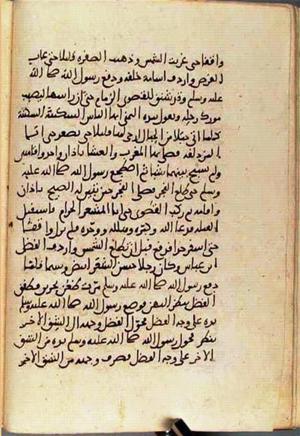 واقفا حتى غربت الشمس وذهبت الصفرة قليلا حتى غاب
القرص واردف اسامة خلفه ودفع رسول الله صلى الله
عليه وسلم وقد شنق للقصوى الزمام حتى ان راسها ليصيب
مورك رحله ويقول بيده اليمنى ايها الناس السكينة السكينة
كلما اتى حبلا من الحبال ارخى لها قليلا حتى تصعد حتى اتى
المزدلفة فصلى بها المغرب والعشا باذان واحد واقامتين
ولم يسبح بينهما شيا ثم اضطجع رسول الله صلى الله عليه
وسلم حتى طلع الفجر فصلى الفجر حين تبين له الصبح باذان
واقامة ثم ركب القصوى حتى اتى المشعر الحرام فاستقبل
القبلة فدعا الله وكبره وهلله ووحده فلم يزل واقفا
حتى اسفر جدا فدفع قبل ان تطلع الشمس واردف الفضل
ابن عباس وكان رجلا حسن الشعر ابيض وسيما فلما
دفع رسول الله صلى الله عليه وسلم مرت ظعن يجرين فطفق
الفضل ينظر اليهن فوضع رسول الله صلى الله عليه وسلم
يده على وجه الفضل فحول الفضل وجهه الى الشق الاخر
ينظر فحول رسول الله صلى الله عليه وسلم يده من الشق
الاخر على وجه الفضل فصرف وجهه من الشق الاخر